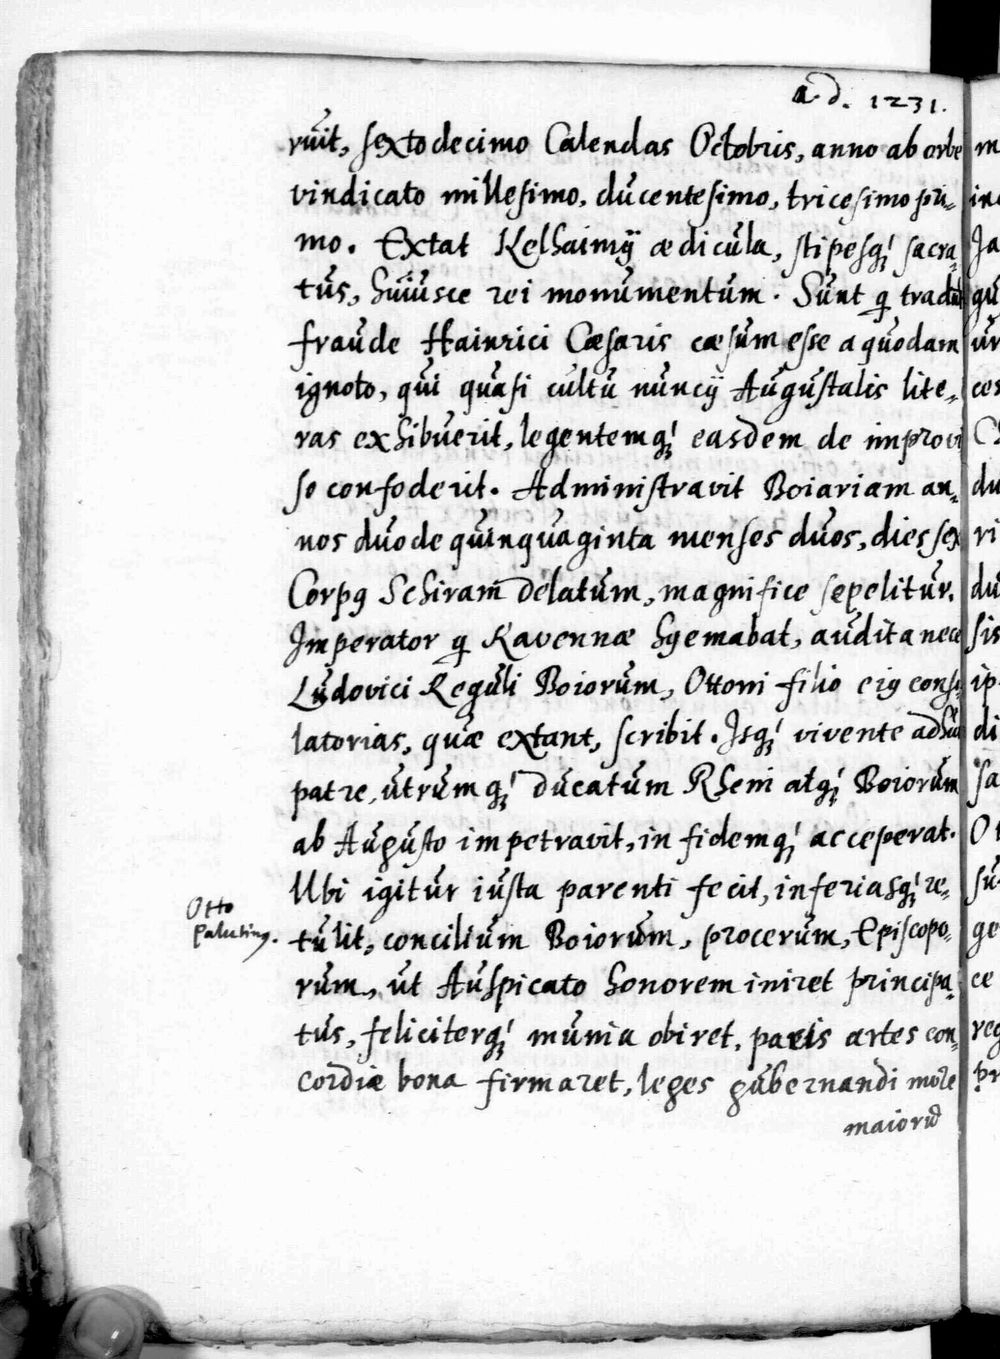 a. d. 1231.
ruit, sexto decimo Calendas Octobris, anno ab orbe
vindicato millesimo, ducentesimo, tricesimo pri-
mo. Extat Kelhaimij ædicula, stipesq; sacra-
tus, huiusce rei monumentum. Sunt q tradūt
fraude Hainrici Cæsaris cæsum esse a quodam
ignoto, qui quasi cultu nuncij Augustalis lite-
ras exhibuerit, legentemq; easdem de improvi
so confoderit. Administravit Boiariam an-
nos duo de quinquaginta menses duos, dies sex
Corpꝯ Schiram delatum, magnifice sepelitur.
Imperator q Ravennæ hyemabat, audita nece
Ludovici Reguli Boiorum, Ottoni filio eiꝯ conso
latorias, quæ extant, scribit. Isq; vivente adhuc
patre, utrumq; ducatum Rheni atq; Boiorum
ab Augusto impetravit, in fidemq; acceperat.
Ubi igitur iusta parenti fecit, inferiasq; re-
Otto
Palatinꝯ.
tulit, concilium Boiorum, procerum, Episcopo-
rum, ut Auspicato honorem iniret principa-
tus, feliciterq; munia obiret, pacis artes con-
cordiæ bona firmaret, leges gubernandi more
maiorū